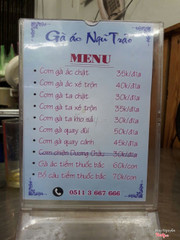 Gà ác Ngũ Trâo
MENU
• Cơm gà ác chặt 35k/dĩa
• Cơm gà ác xé trộn 40k/dĩa
• Cơm gà ta chặt 30k/dĩa
• Cơm gà ta xé trộn 35k/dĩa
• Cơm gà ta kho sả 30k/dĩa
• Cơm gà quay đùi 50k/dĩa
• Cơm gà quay cánh 45k/dĩa
• Cơm chiên Dương Châu 30k/dĩa
• Gà ác tiềm thuốc bắc 60k/con
• Bồ câu tiềm thuốc bắc 70k/con
0511 3 667 666